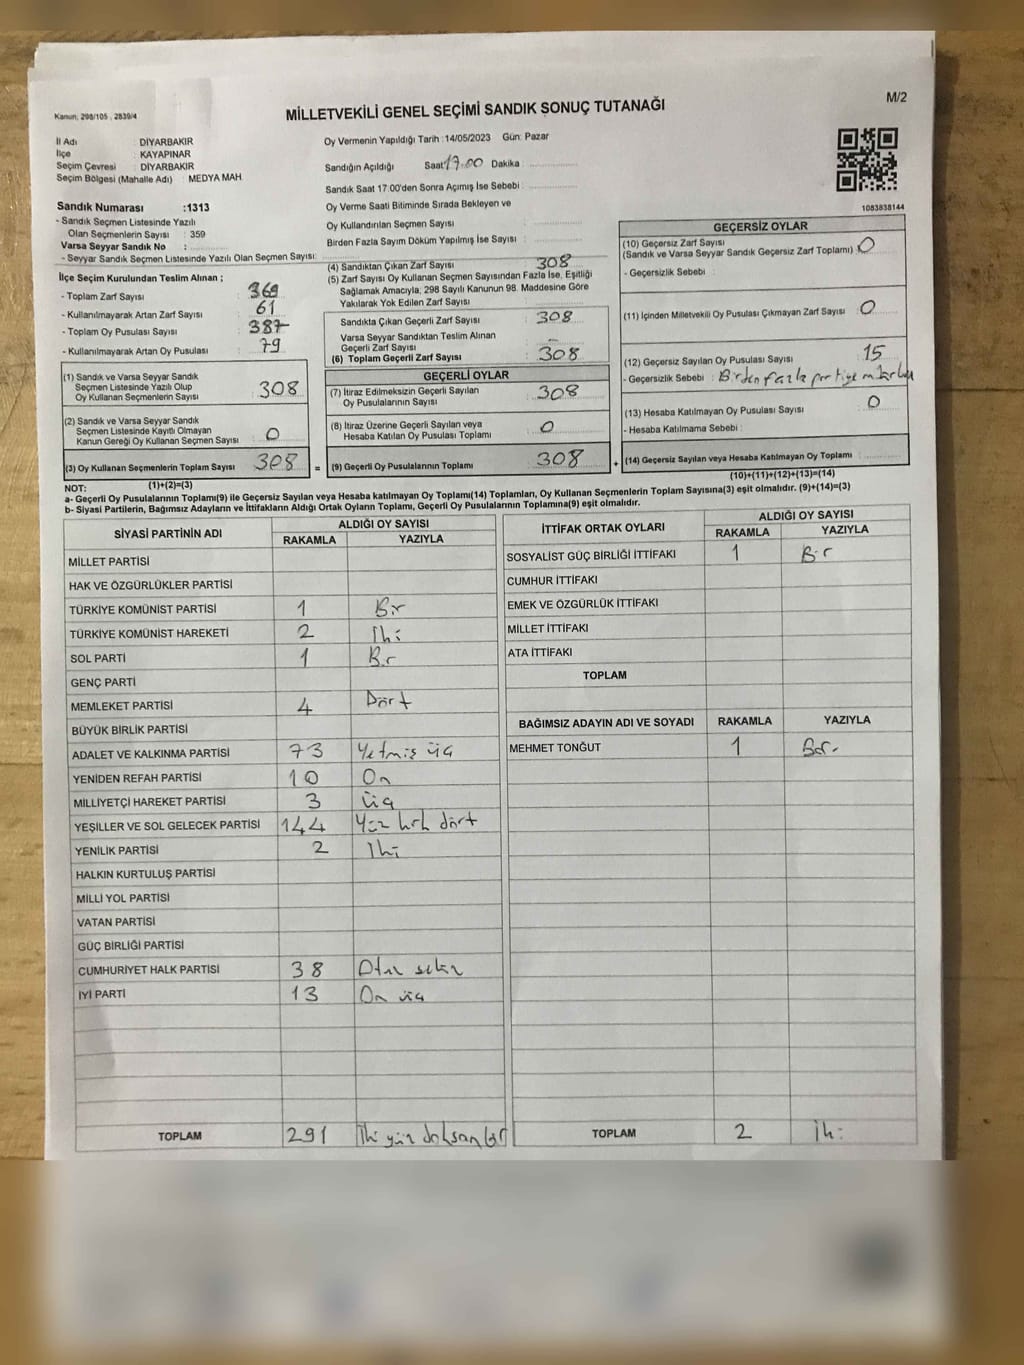 M/2
Kanun, 298/105 , 2839/4
MİLLETVEKİLİ GENEL SEÇİMİ SANDIK SONUÇ TUTANAĞI
İl Adı : DİYARBAKIR
İlçe : KAYAPINAR
Seçim Çevresi : DİYARBAKIR
Seçim Bölgesi (Mahalle Adı) : MEDYA MAH.
Sandık Numarası :1313
- Sandık Seçmen Listesinde Yazılı
Olan Seçmenlerin Sayısı : 359
Varsa Seyyar Sandık No :
- Seyyar Sandık Seçmen Listesinde Yazılı Olan Seçmen Sayısı:
İlçe Seçim Kurulundan Teslim Alınan ;
- Toplam Zarf Sayısı : 369
- Kullanılmayarak Artan Zarf Sayısı : 61
- Toplam Oy Pusulası Sayısı : 387
- Kullanılmayarak Artan Oy Pusulası : 79
(1) Sandık ve Varsa Seyyar Sandık
Seçmen Listesinde Yazılı Olup
Oy Kullanan Seçmenlerin Sayısı 308
(2) Sandık ve Varsa Seyyar Sandık
Seçmen Listesinde Kayıtlı Olmayan
Kanun Gereği Oy Kullanan Seçmen Sayısı 0
(3) Oy Kullanan Seçmenlerin Toplam Sayısı 308 =
(1)+(2)=(3)
Oy Vermenin Yapıldığı Tarih :14/05/2023 Gün: Pazar
Sandığın Açıldığı Saat 17.00 Dakika :
Sandık Saat 17:00'den Sonra Açımış İse Sebebi :
Oy Verme Saati Bitiminde Sırada Bekleyen ve
Oy Kullandırılan Seçmen Sayısı :
Birden Fazla Sayım Döküm Yapılmış İse Sayısı :
(4) Sandıktan Çıkan Zarf Sayısı 308
(5) Zarf Sayısı Oy Kullanan Seçmen Sayısından Fazla İse, Eşitliği
Sağlamak Amacıyla, 298 Sayılı Kanunun 98. Maddesine Göre
Yakılarak Yok Edilen Zarf Sayısı :
Sandıkta Çıkan Geçerli Zarf Sayısı : 308
Varsa Seyyar Sandıktan Teslim Alınan
Geçerli Zarf Sayısı : -
(6) Toplam Geçerli Zarf Sayısı : 308
GEÇERLİ OYLAR
(7) İtiraz Edilmeksizin Geçerli Sayılan
Oy Pusulalarının Sayısı : 308
(8) İtiraz Üzerine Geçerli Sayılan veya
Hesaba Katılan Oy Pusulası Toplamı : 0
(9) Geçerli Oy Pusulalarının Toplamı 308 +
1083838144
GEÇERSİZ OYLAR
(10) Geçersiz Zarf Sayısı
(Sandık ve Varsa Seyyar Sandık Geçersiz Zarf Toplamı) : 0
- Geçersizlik Sebebi :
(11) İçinden Milletvekili Oy Pusulası Çıkmayan Zarf Sayısı : 0
(12) Geçersiz Sayılan Oy Pusulası Sayısı : 15
- Geçersizlik Sebebi : Birden fazla partiye
(13) Hesaba Katılmayan Oy Pusulası Sayısı : 0
- Hesaba Katılmama Sebebi :
(14) Geçersiz Sayılan veya Hesaba Katılmayan Oy Toplamı :
(10)+(11)+(12)+(13)=(14)
NOT:
a- Geçerli Oy Pusulalarının Toplamı(9) ile Geçersiz Sayılan veya Hesaba katılmayan Oy Toplamı(14) Toplamları, Oy Kullanan Seçmenlerin Toplam Sayısına(3) eşit olmalıdır. (9)+(14)=(3)
b- Siyasi Partilerin, Bağımsız Adayların ve İttifakların Aldığı Ortak Oyların Toplamı, Geçerli Oy Pusulalarının Toplamına(9) eşit olmalıdır.
SİYASİ PARTİNİN ADI ALDIĞI OY SAYISI
RAKAMLA YAZIYLA
MİLLET PARTİSİ
HAK VE ÖZGÜRLÜKLER PARTİSİ
TÜRKİYE KOMÜNİST PARTİSİ 1 Bir
TÜRKİYE KOMÜNİST HAREKETİ 2 İki
SOL PARTİ 1 Bir
GENÇ PARTİ
MEMLEKET PARTİSİ 4 Dört
BÜYÜK BİRLİK PARTİSİ
ADALET VE KALKINMA PARTİSİ 73 Yetmiş üç
YENİDEN REFAH PARTİSİ 10 On
MİLLİYETÇİ HAREKET PARTİSİ 3 üç
YEŞİLLER VE SOL GELECEK PARTİSİ 144 Yüz kırk dört
YENİLİK PARTİSİ 2 İki
HALKIN KURTULUŞ PARTİSİ
MİLLİ YOL PARTİSİ
VATAN PARTİSİ
GÜÇ BİRLİĞİ PARTİSİ
CUMHURİYET HALK PARTİSİ 38 Otuz sekiz
İYİ PARTİ 13 On üç
TOPLAM 291 İki yüz doksan bir
İTTİFAK ORTAK OYLARI ALDIĞI OY SAYISI
RAKAMLA YAZIYLA
SOSYALİST GÜÇ BİRLİĞİ İTTİFAKI 1 Bir
CUMHUR İTTİFAKI
EMEK VE ÖZGÜRLÜK İTTİFAKI
MİLLET İTTİFAKI
ATA İTTİFAKI
TOPLAM
BAĞIMSIZ ADAYIN ADI VE SOYADI RAKAMLA YAZIYLA
MEHMET TONĞUT 1 Bir
TOPLAM 2 İki